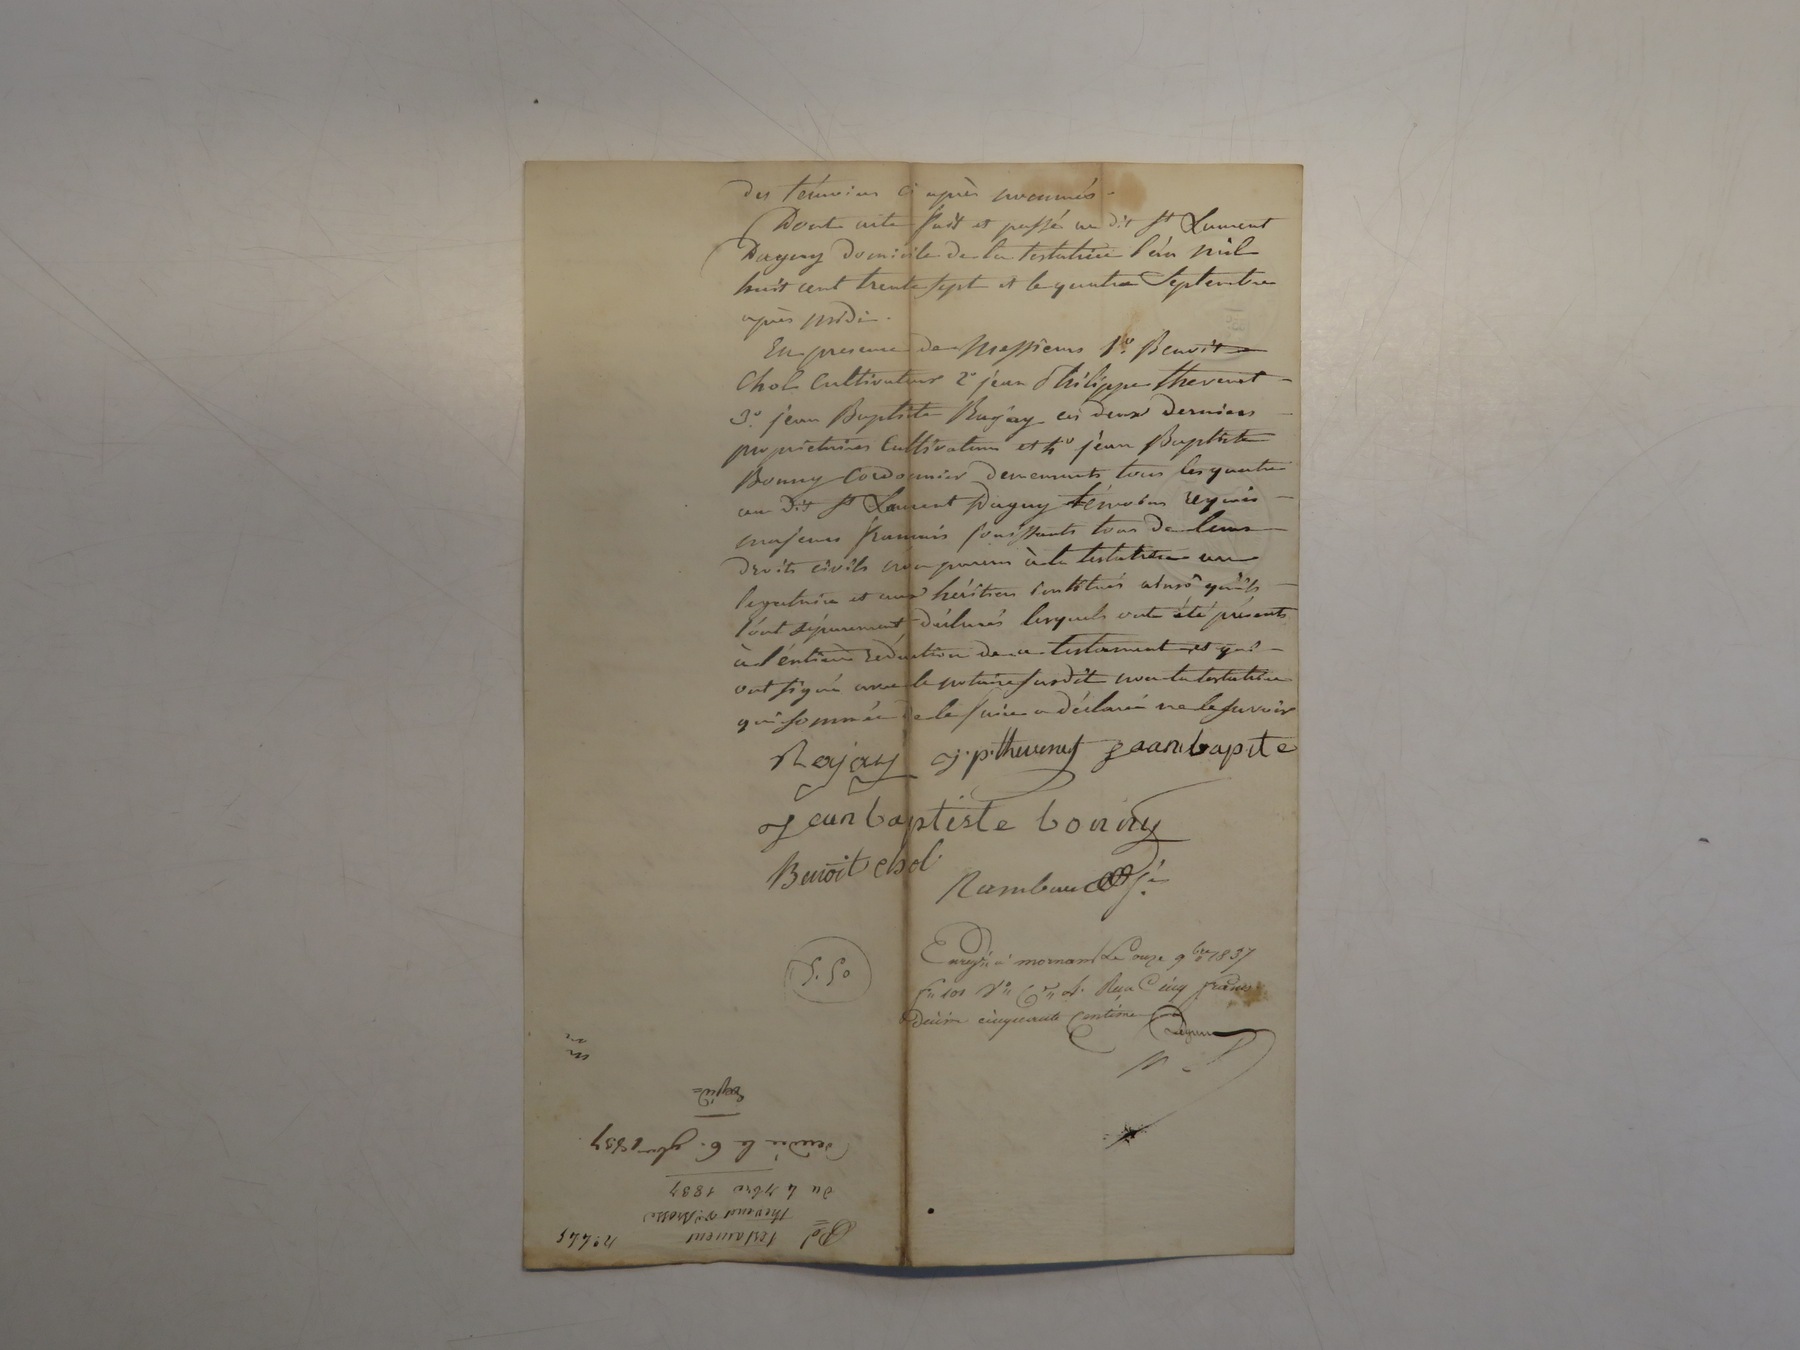 des témoins ci après nommés.
Dont acte fait et passé au dit St Laurent
Dagny domicile de la testatrice l'an mil
huit cent trente sept et le quatre Septembre
après midi.
En presence de Messieurs 1º. Benoit
Chol Cultivateur 2º jean Philippe thevenet
3º. jean Baptiste Rajay ces deux derniers
proprietaires Cultivateurs et 4º jean Baptiste
Bonny Cordonnier demeurants tous les quatre
au dit St Laurent Dagny témoins requis
majeurs francais jouissants tous de leurs
droits civils non parens à la testatrice au
legataire et aux héritiers institués ainsi qu'ils
l'ont séparement déclarés lesquels ont été présents
à l'entiere rédaction de ce testament et qui
ont signé avec le notaire susdit non la testatrice
qui sommée de le faire a déclaré ne le savoir
Rajay j. p. thevenet jeanbapite
jean baptiste bonny
Benoit chol
Rambaud
Enregé à mornant Le onze 9bre 1837
fº 101 Rº Cinq francs
décime cinquante Centimes
5. 50
Expédié
du 4 7bre 1837
testament
nº 445